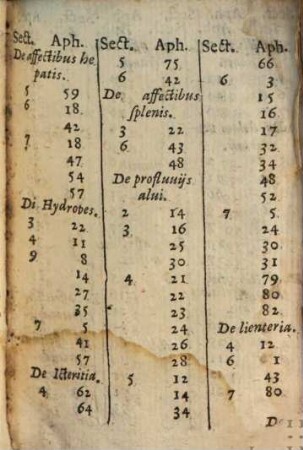 Sect. Aph.
De affectibus he
patis.
5 59
6 18
42
7 18
47
54
57
Di Hydropes.
3 22
4 11
9 8
14
27
35
7 5
41
57
De Icteritia.
4 62
64
Sect. Aph.
5 75
6 42
De affectibus
splenis.
3 22
6 43
48
De profluuijs
alui.
2 14
3 16
25
30
4 21
22
23
24
26
28
5 12
14
34
Sect. Aph.
66
6 3
15
16
17
32
34
48
52
7 5
24
30
31
79
80
82
De lienteria.
4 12
6 1
43
7 80
De